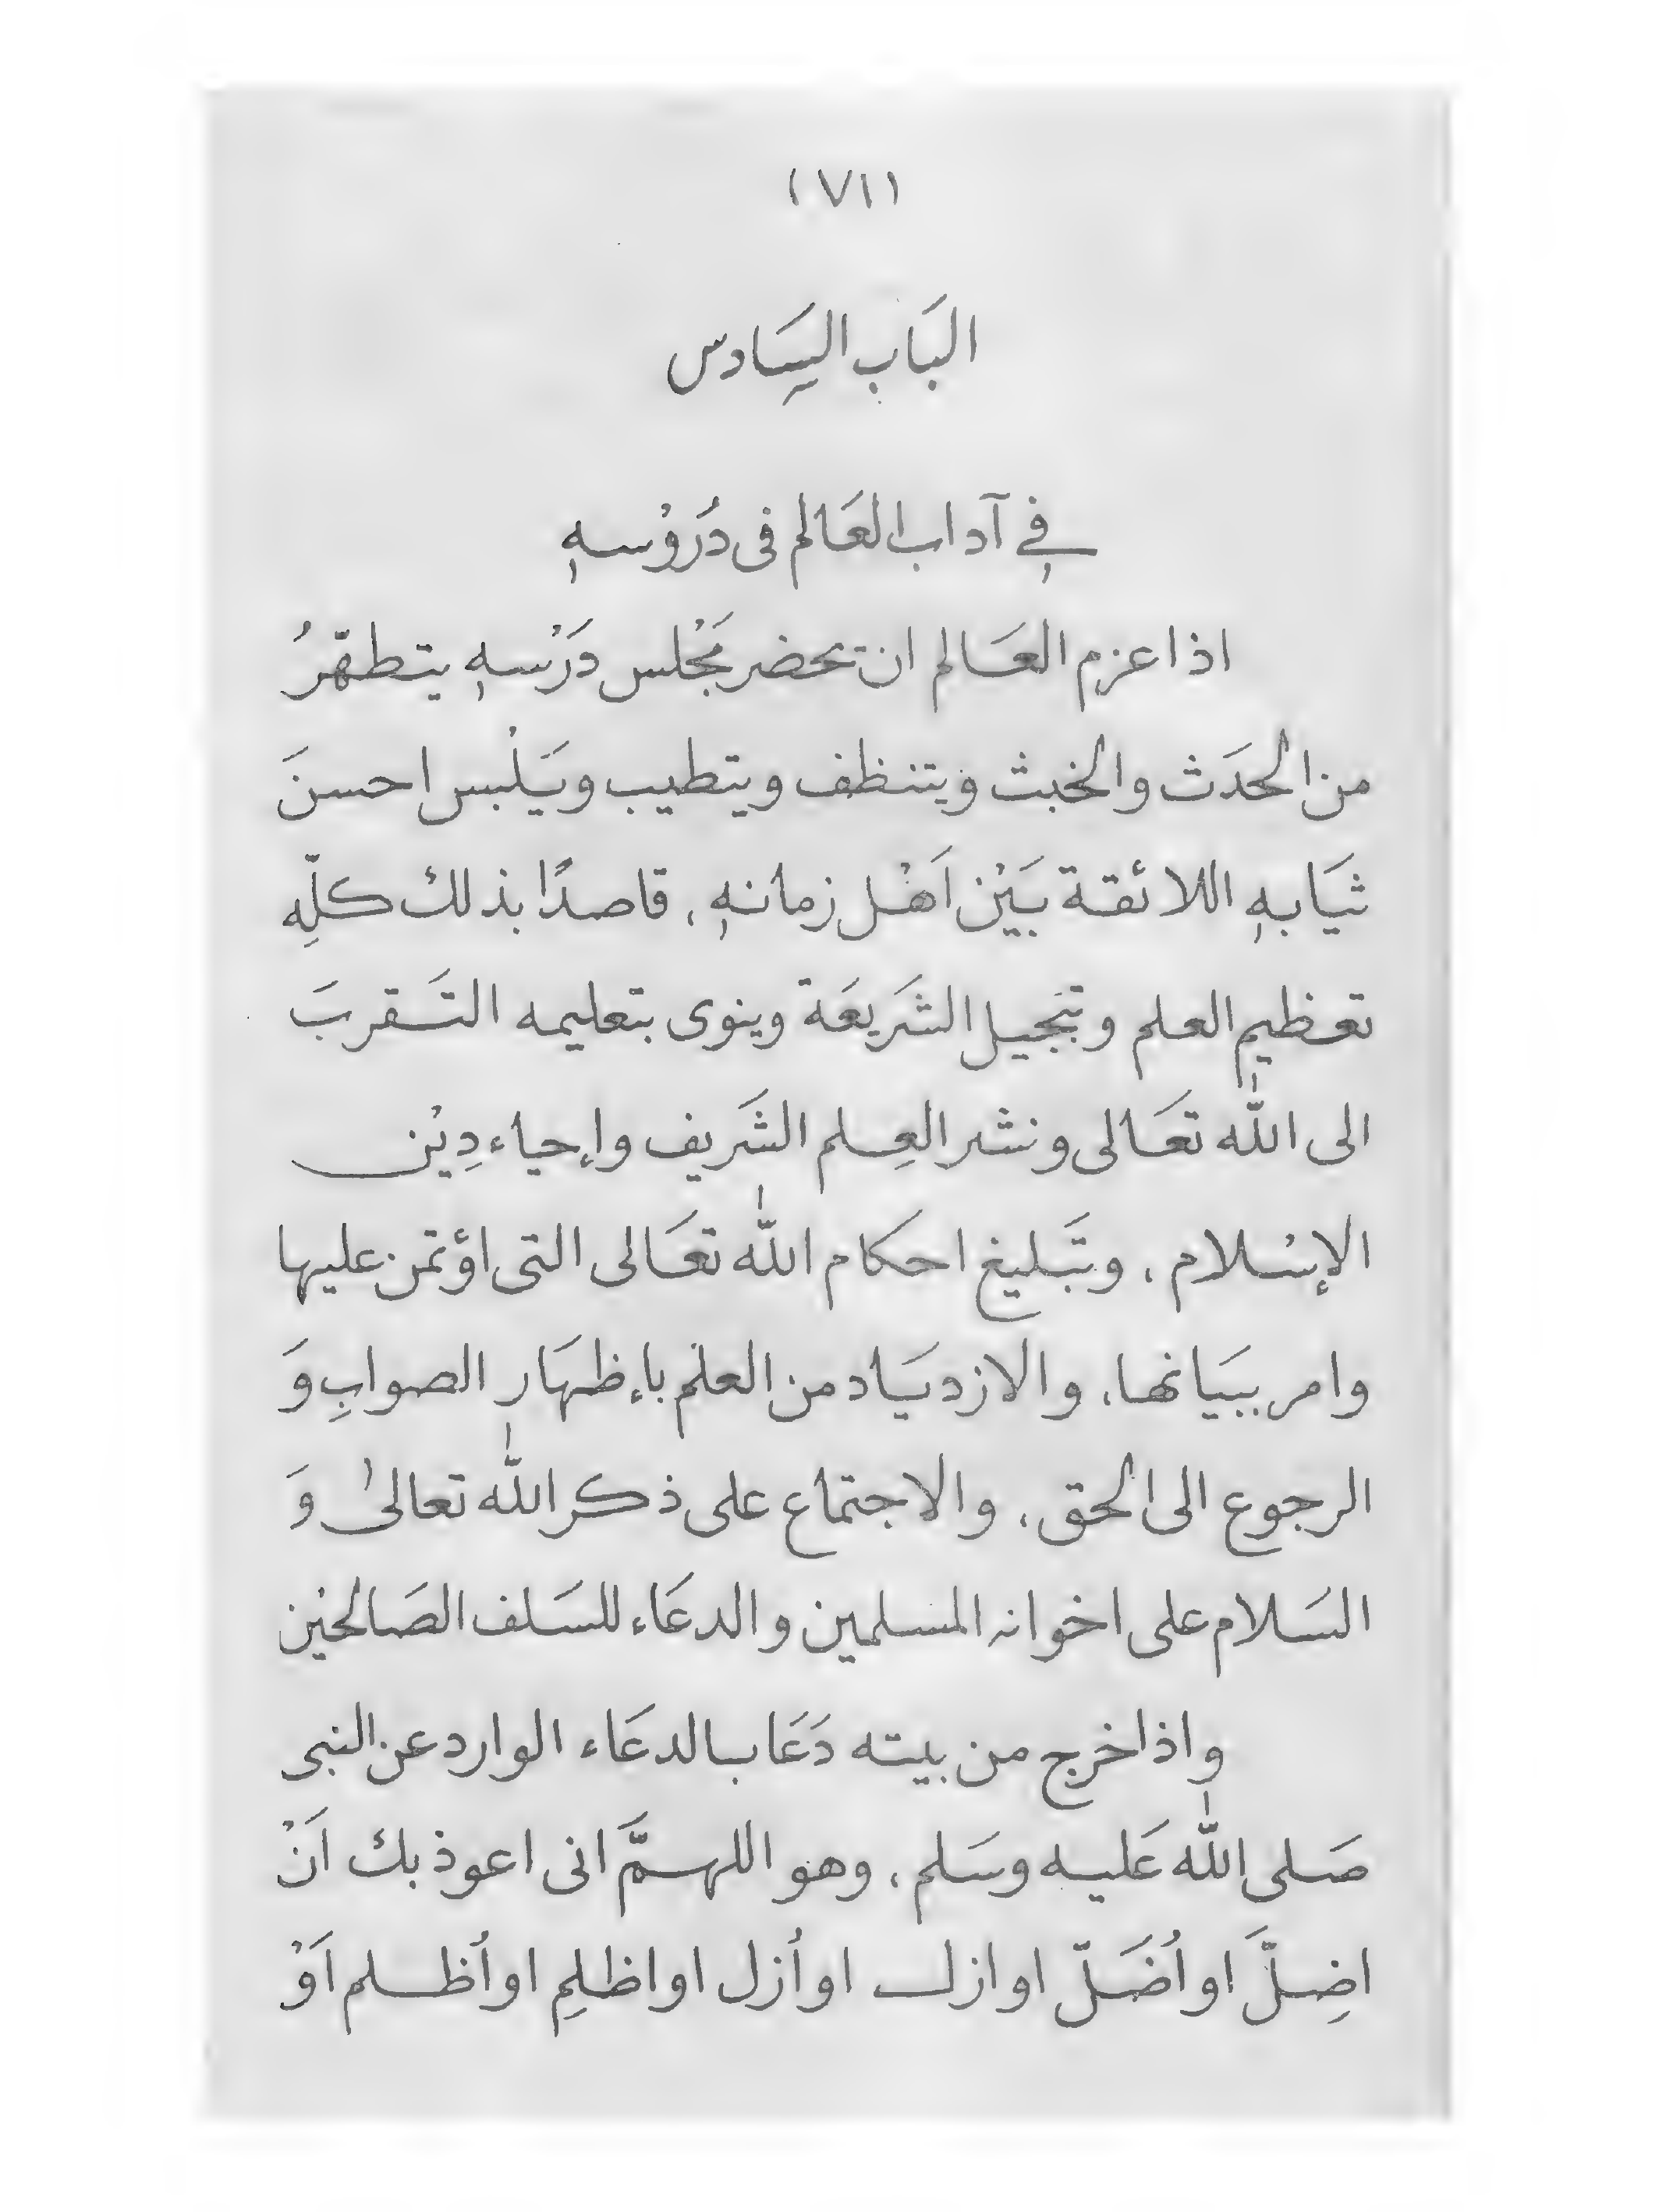 (٧١)
البَاب السَّادس
فِي آداب العَالم فى دُرَوْسهٖ
اذا عزم العَالم ان يحضر مَجْلس دَرْسهٖ يتطهّرُ
من الحدَث والخبث ويتنظف ويتطيب ويَلْبس احسنَ
ثيَابهٖ اللائقة بَيْن اَهْل زمانهٖ، قاصدًا بذلك كلِّه
تعظيم العلم وتبجيل الشَريعَة وينوى بتعليمه التَقربَ
الى الله تعَالى ونشر العِلم الشَريف وإحياء دِيْن
الإسْلام، وتَبليغ احكام الله تعَالى التى اؤتمن عليها
وامر ببيَانها، والازديَاد من العلم بإظهَار الصوابِ وَ
الرجوع الى الحق، والاجتماع على ذكر الله تعالىٰ وَ
السَلام على اخوانه المسلمين والدعَاء للسَلف الصَالحيْن
واذا خرج من بيته دَعَا بالدعَاء الوارد عن النبى
صَلى الله عَليه وسَلم، وهو اللهمَّ انى اعوذ بك اَنْ
اضِلَّ او اُضَلّ او ازل او اُزل او اظلِم او اُظلم اَوْ